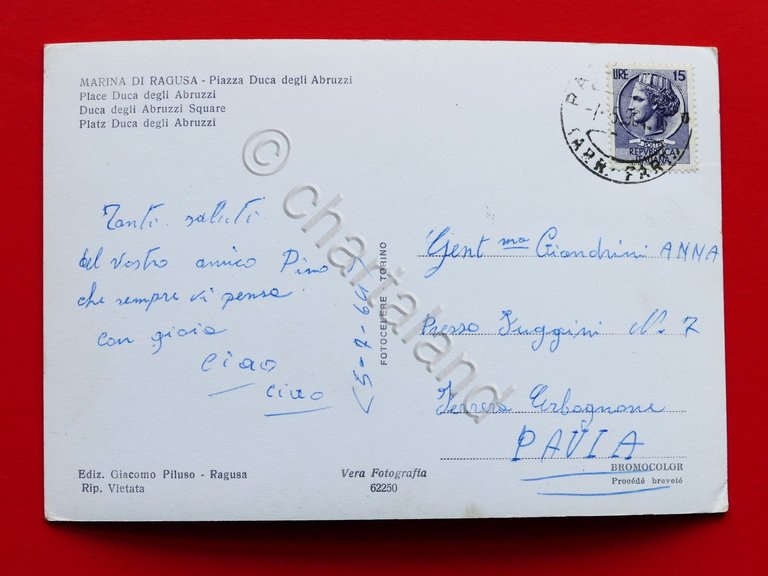 MARINA DI RAGUSA - Piazza Duca degli Abruzzi
Place Duca degli Abruzzi
Duca degli Abruzzi Square
Platz Duca degli Abruzzi
LIRE 15
POSTE
REPVBBLICA
ITALIANA
Tanti saluti
del vostro amico Pino
che sempre vi pensa
con gioia
ciao
ciao
FOTOCELERE TORINO
Gent ma Giandrini ANNA
Presso Fuggini N. 7
Erbagnone
PAVIA
Ediz. Giacomo Piluso - Ragusa
Rip. Vietata
Vera Fotografia
62250
BROMOCOLOR
Procédé breveté
© chartaland